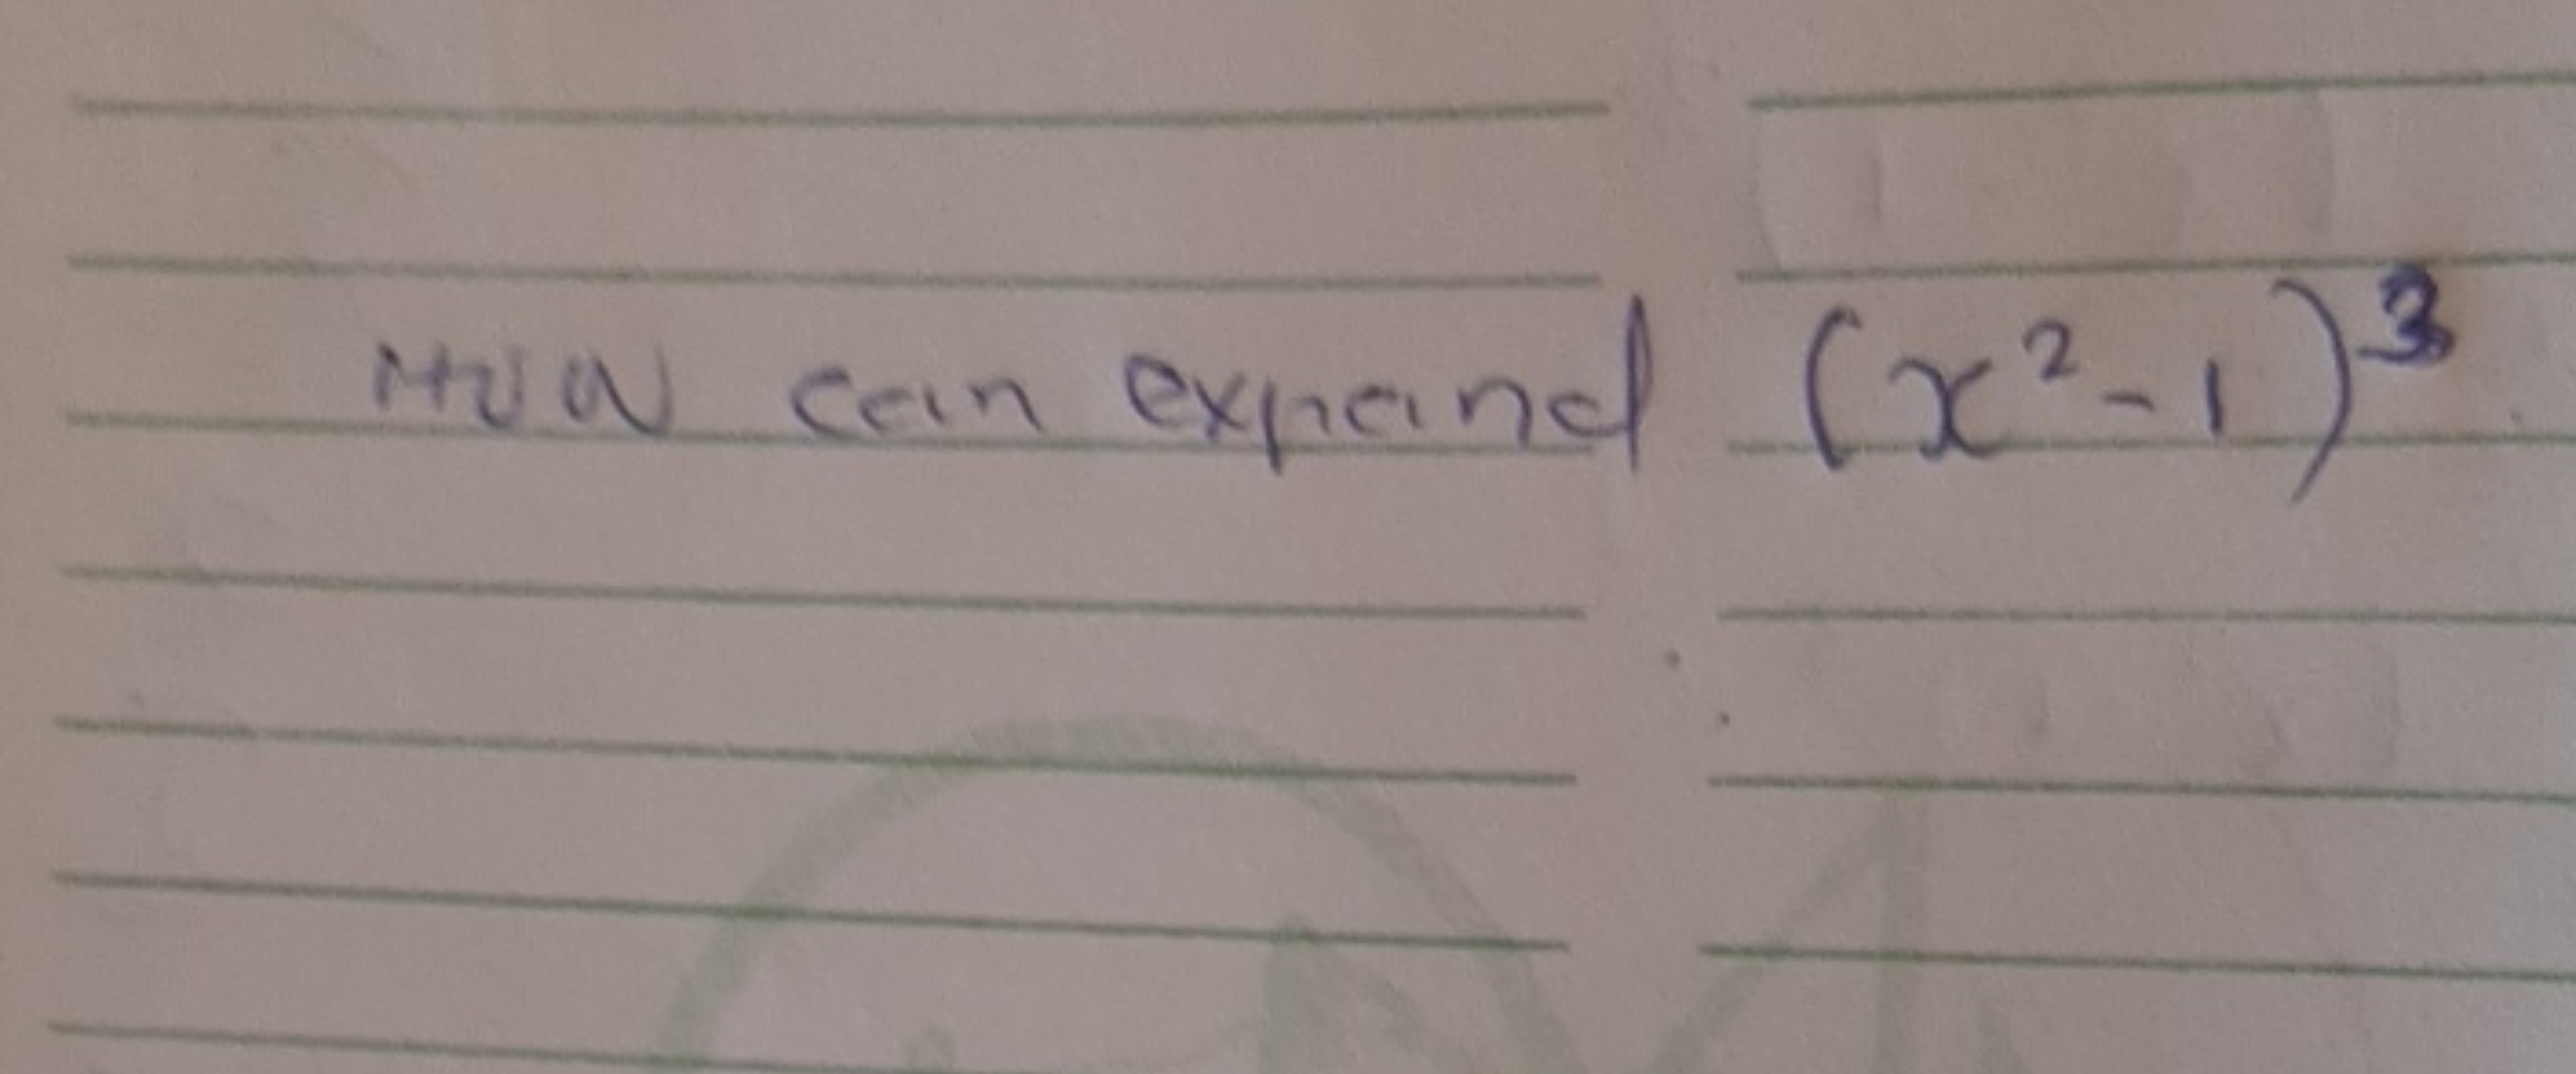 How can expand (x²-1)³